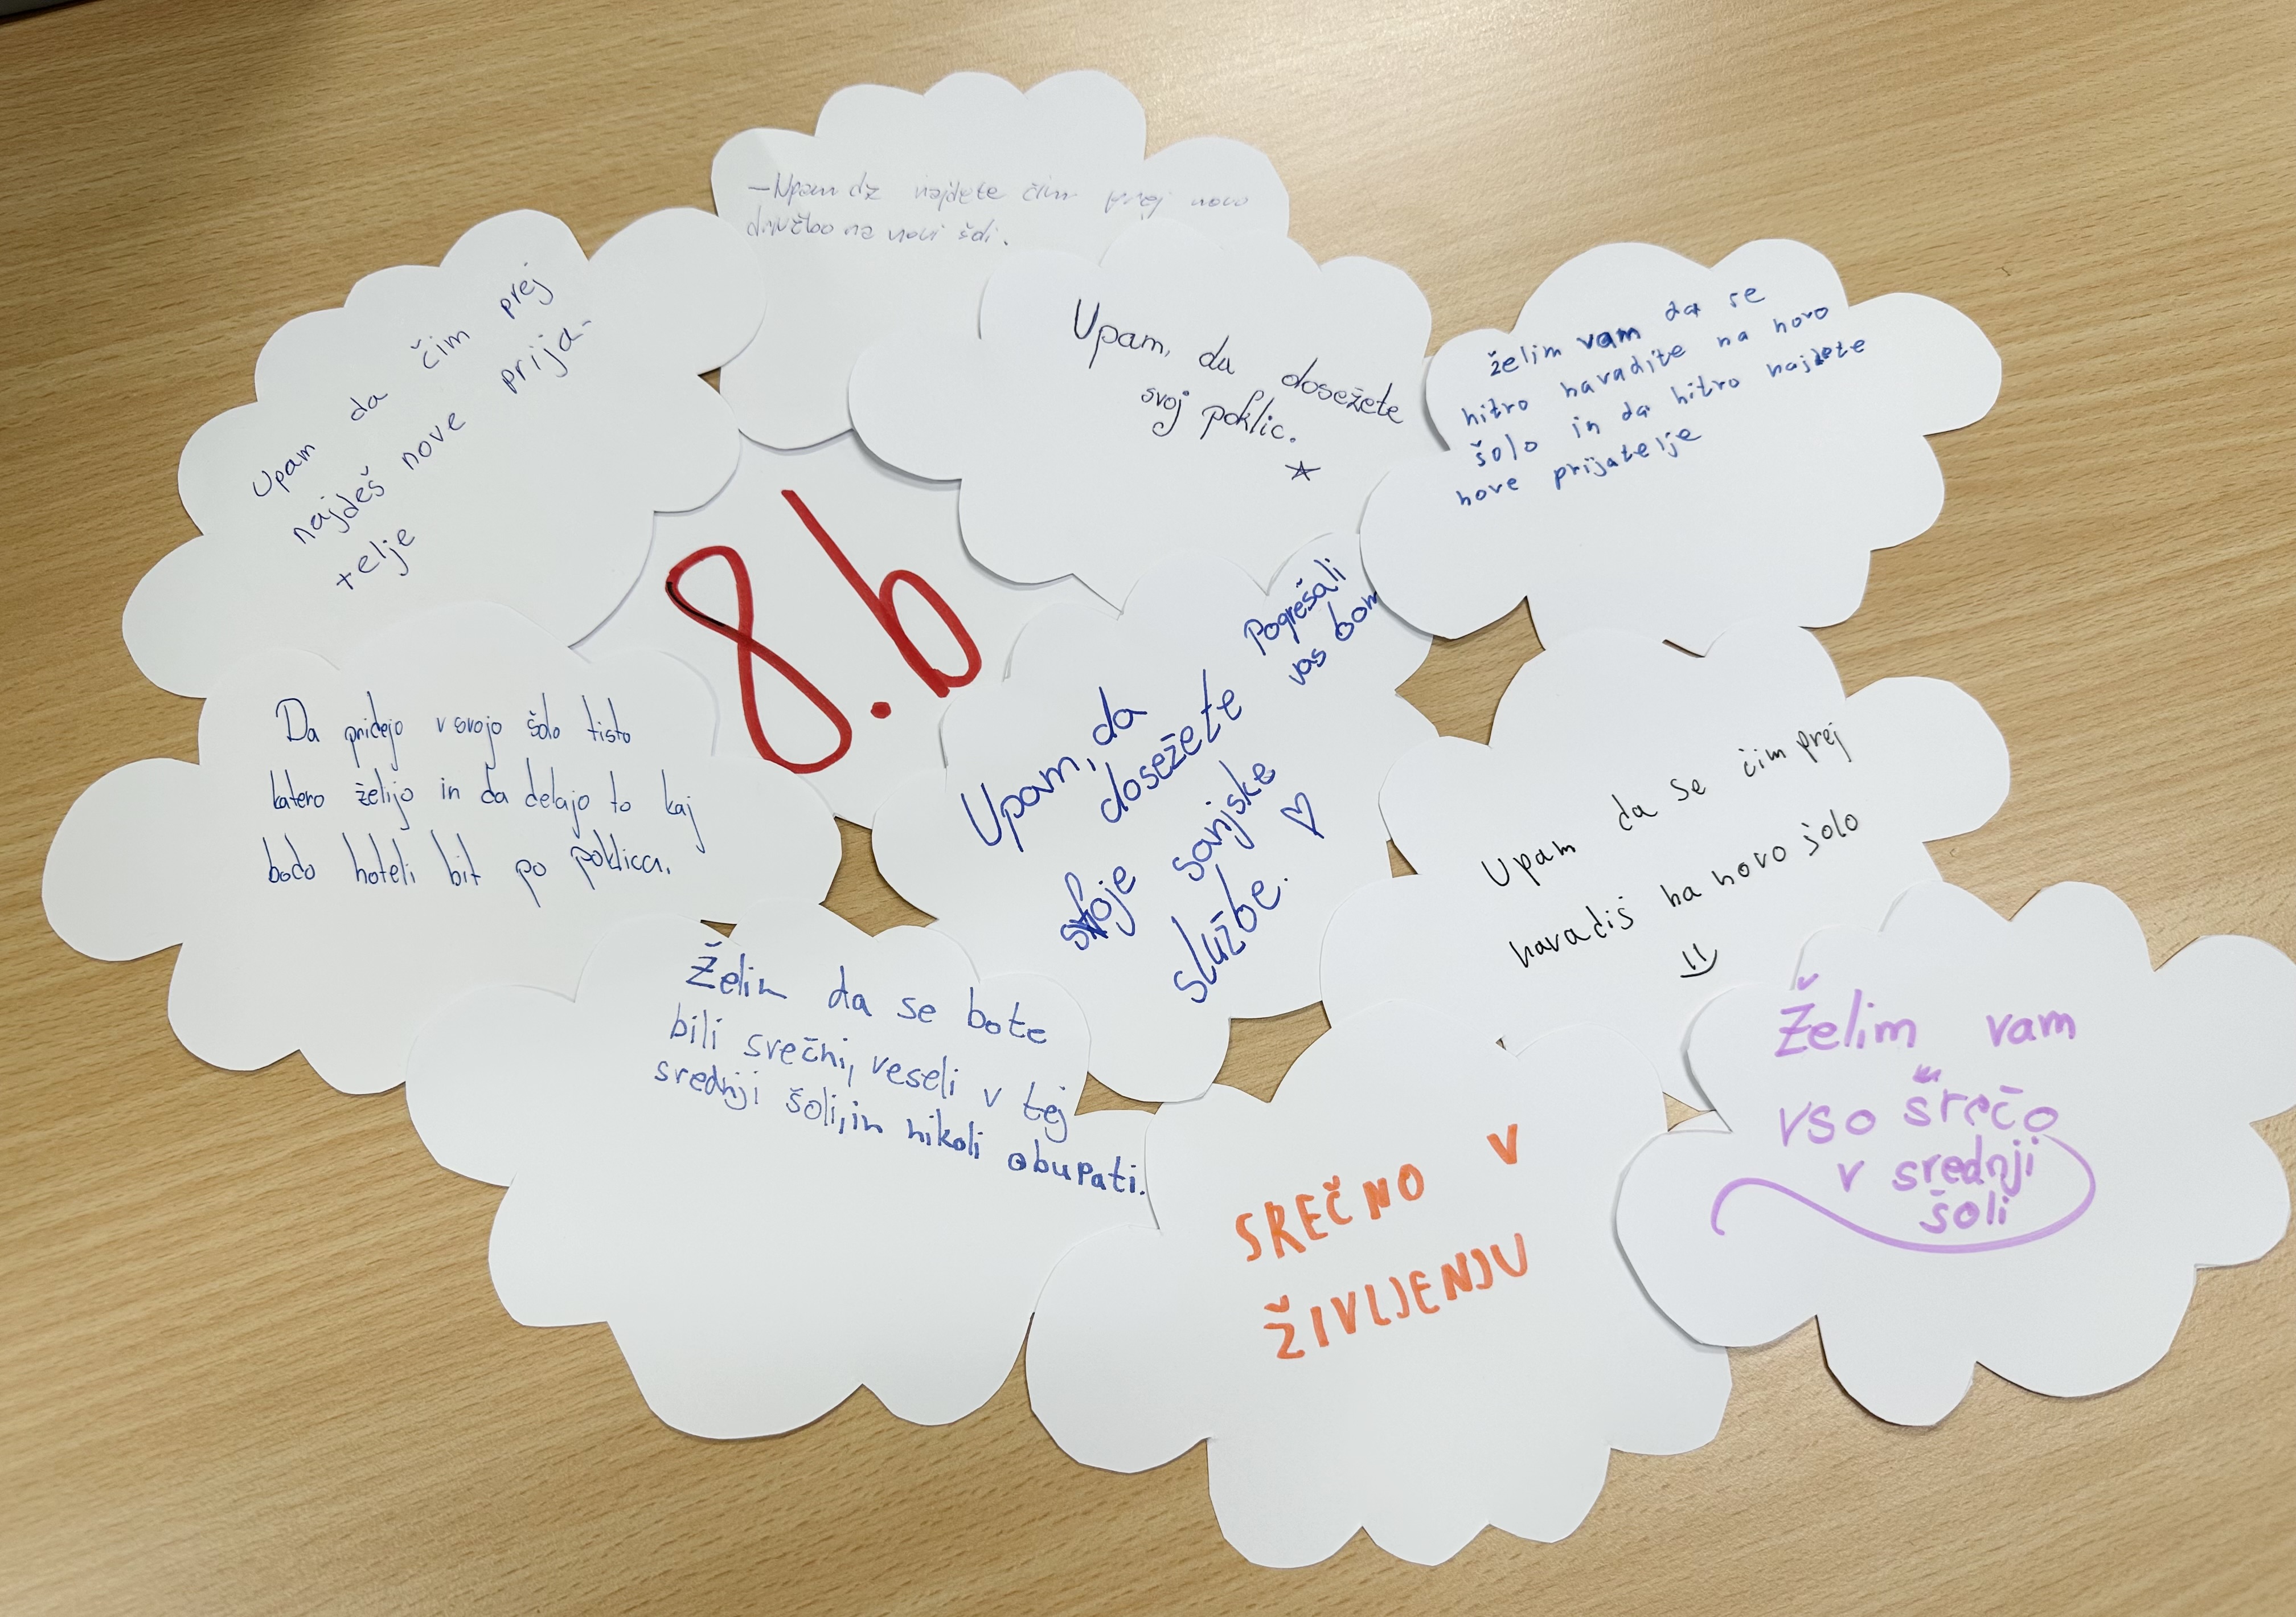 - Upam da najdete čim prej novo
družbo na novi šoli.
Upam da čim prej
najdeš nove prija-
telje
Upam, da dosežete
svoj poklic.
želim vam da se
hitro navadite na novo
šolo in da hitro najdete
nove prijatelje
8.b
Da pridejo v svojo šolo tisto
katero želijo in da delajo to kaj
bodo hoteli bit po poklicu.
Upam, da
dosežete
svoje sanjske
službe.
Pogrešali
vas bom
Upam da se čim prej
navadiš na novo šolo
Želim da se bote
bili srečni, veseli v tej
srednji šoli, in nikoli obupati.
SREČNO V
ŽIVLJENJU
Želim vam
vso srečo
v srednji
šoli